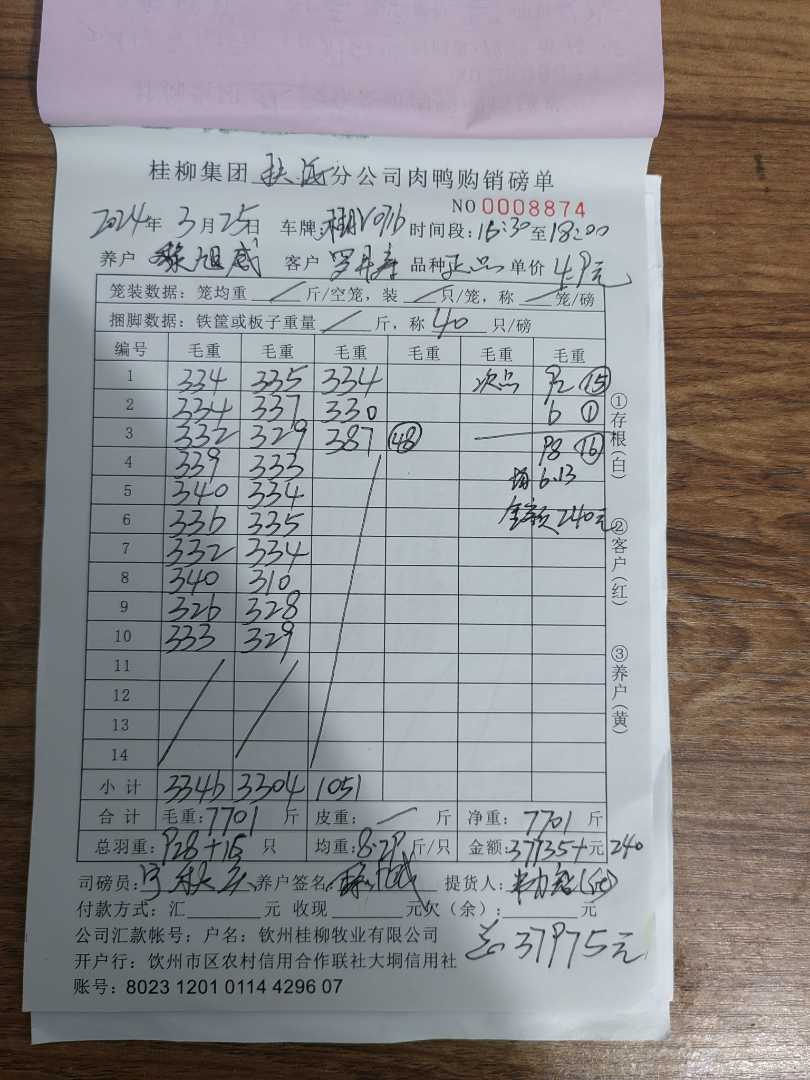 桂柳集团 扶 分公司肉鸭购销磅单
NO 0008874
2024年 3月25日 车牌: 时间段:16:30至18:00
养户 黎旭威 客户 罗 品种 正品 单价 4.9元
笼装数据：笼均重 / 斤/空笼，装 / 只/笼，称 / 笼/磅
捆脚数据：铁筐或板子重量 / 斤，称 40 只/磅
编号 毛重 毛重 毛重 毛重 毛重 毛重
1 334 335 334 次品 92 ⑮
2 334 337 330 6 ①
3 332 329 387 ㊽ 98 ⑯
4 339 333
均 6.13
5 340 334
6 336 335 金额 240元
7 332 334
8 340 310
9 326 328
10 333 329
11
12
13
14
小计 3346 3304 1051
合计 毛重:7701 斤 皮重: / 斤 净重: 7701 斤
总羽重:928+15 只 均重:8.29斤/只 金额:37735+元 240
司磅员: 养户签名: 提货人:
付款方式：汇 元 收现 元欠（余）: 元
公司汇款帐号：户名：钦州桂柳牧业有限公司
总 37975元
开户行：饮州市区农村信用合作联社大垌信用社
账号：8023 1201 0114 4296 07
①存根（白）
②客户（红）
③养户（黄）